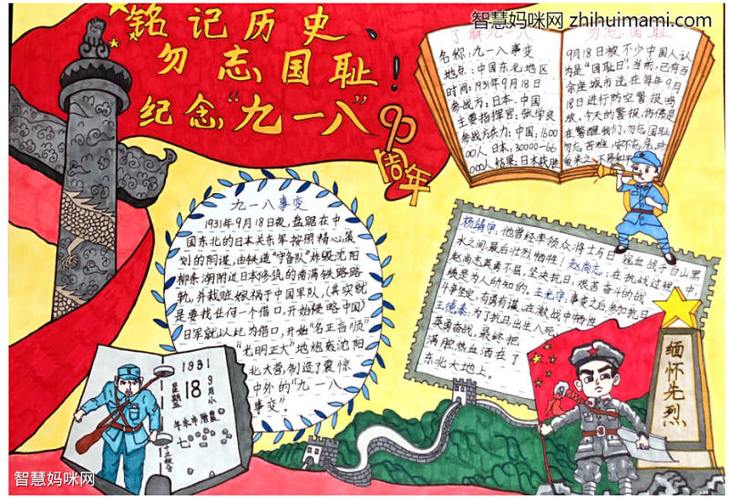 智慧妈咪网 zhihuimami.com
铭记历史、
勿忘国耻!
纪念“九一八”
90周年
了解九一八
名称:九一八事变
地点:中国东北地区
时间:1931年9月18日
参战方:日本、中国
主要指挥官:张学良
参战方兵力:中国:16000
00人 日本:30000—66
000人 结果:日本战胜
勿忘国耻
9月18日被不少中国人认
为是“国耻日”当前,已有百
余座城市选在每年9月
18日进行防空警报鸣
放,今天的警报,仿佛是
在警醒我们,勿忘国耻
勿忘苦难,安不忘危,
九一八事变
1931年9月18日夜,盘踞在中
国东北的日本关东军按照精心策
划的阴谋,由铁道“守备队”炸毁沈阳
柳条湖附近日本修筑的南满铁路路
轨,并栽赃嫁祸于中国军队,(其实就
是要找任何一个借口,开始侵略中国)
日军就以此为借口,开始“名正言顺”
“光明正大”地炮轰沈阳
北大营,制造了震惊
中外的“九一八
事变”
杨靖宇:他曾经率领众将士与日寇血战于白山黑
水之间,最后壮烈牺牲!赵尚志:在抗战过程中,
赵尚志英勇不屈,坚决抗日,艰苦奋斗的战
绩是为人所知的。王光宇:事变之后参加抗日
斗争坚定,有勇有谋,在激战中牺牲
王德泰:为了抗日出生入死,
英勇奋战,最终把
满腔热血洒在了
东北大地上。
1931
18
星期
七
缅怀先烈
智慧妈咪网